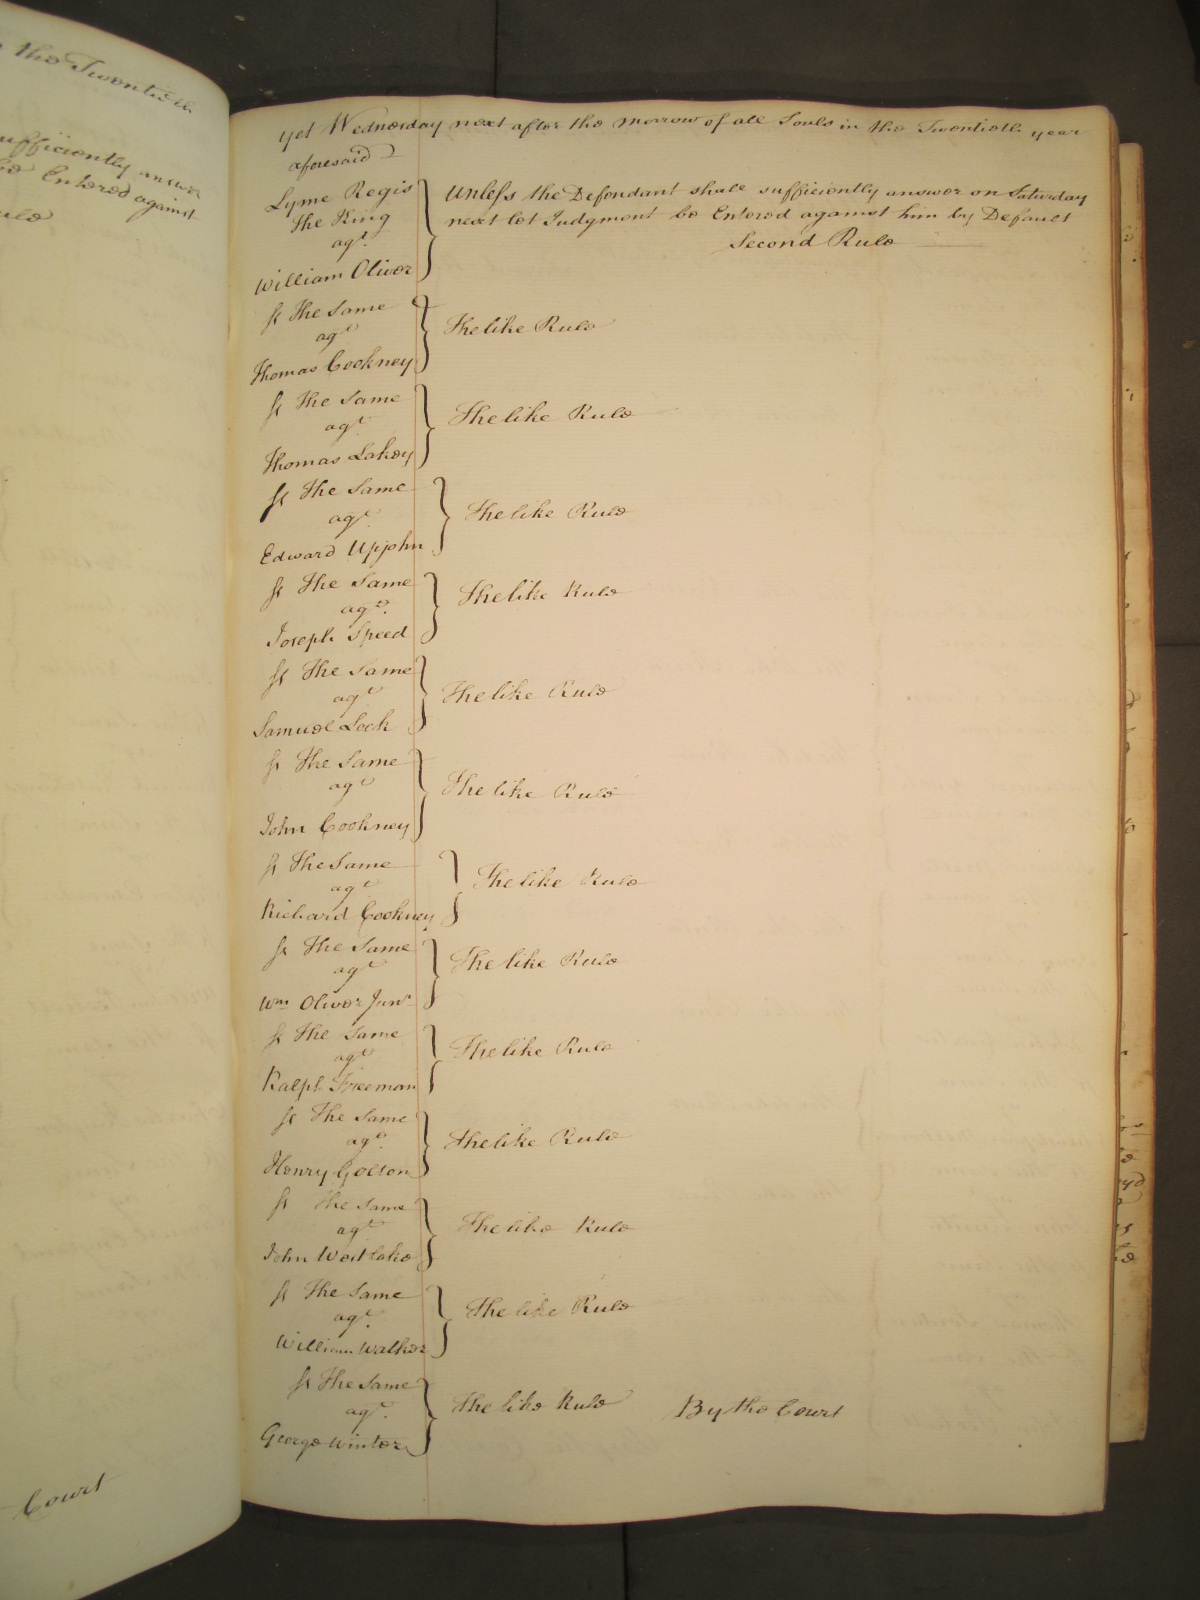 the Twentieth
ufficiently answer
be Entered against
ule
Court
yet Wednesday next after the morrow of all Souls in the Twentieth year
aforesaid
Lyme Regis
The King
agt.
William Oliver
Unless the Defendant shall sufficiently answer on Saturday
next let Judgment be Entered against him by Default
Second Rule
ss The Same
agt
Thomas Cookney
The like Rule
ss The Same
agt
Thomas Lakey
The like Rule
ss The Same
agt.
Edward Upjohn
The like Rule
ss The Same
agt.
Joseph Speed
The like Rule
ss The Same
agt
Samuel Lock
The like Rule
ss The Same
agt
John Cookney
The like Rule
ss The Same
agt
Richard Cookney
The like Rule
ss The Same
agt
Wm Oliver Junr
The like Rule
ss The Same
agt
Ralph Freeman
The like Rule
ss The Same
agt.
Henry Golson
The like Rule
ss The Same
agt.
John Westlake
The like Rule
ss The Same
agt.
William Walker
The like Rule
ss The Same
agt.
George Winter
The like Rule By the Court